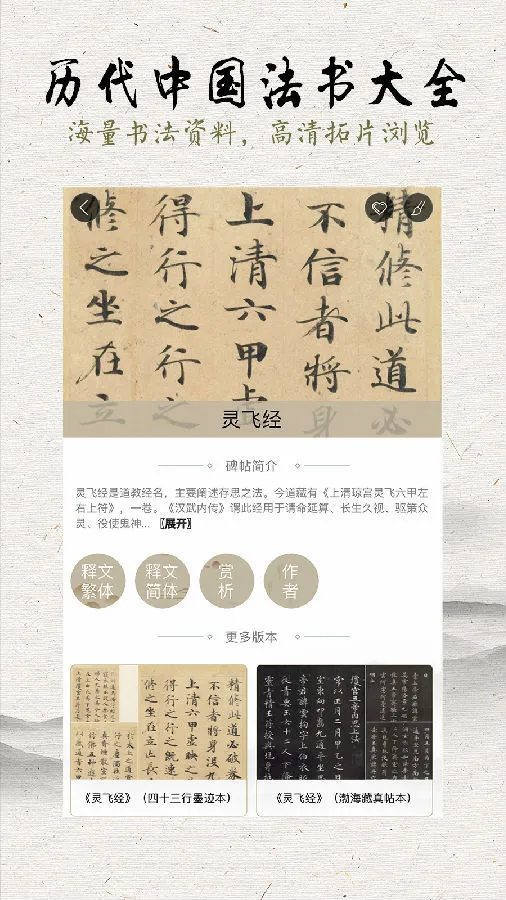 历代中国法书大全
海量书法资料，高清拓片浏览
精修此道必
不信者將身
上清六甲虚
得行之行之
修之坐在立
灵飞经
碑帖简介
灵飞经是道教经名，主要阐述存思之法。今道藏有《上清琼宫灵飞六甲左
右上符》，一卷。《汉武内传》谓此经用于请命延算、长生久视、驱策众
灵、役使鬼神... 【展开】
释文
繁体
释文
简体
赏
析
作
者
更多版本
精修此道必
不信者將身
上清六甲虚
得行之行之
修之坐在立
《灵飞经》（四十三行墨迹本）
《灵飞经》（渤海藏真帖本）